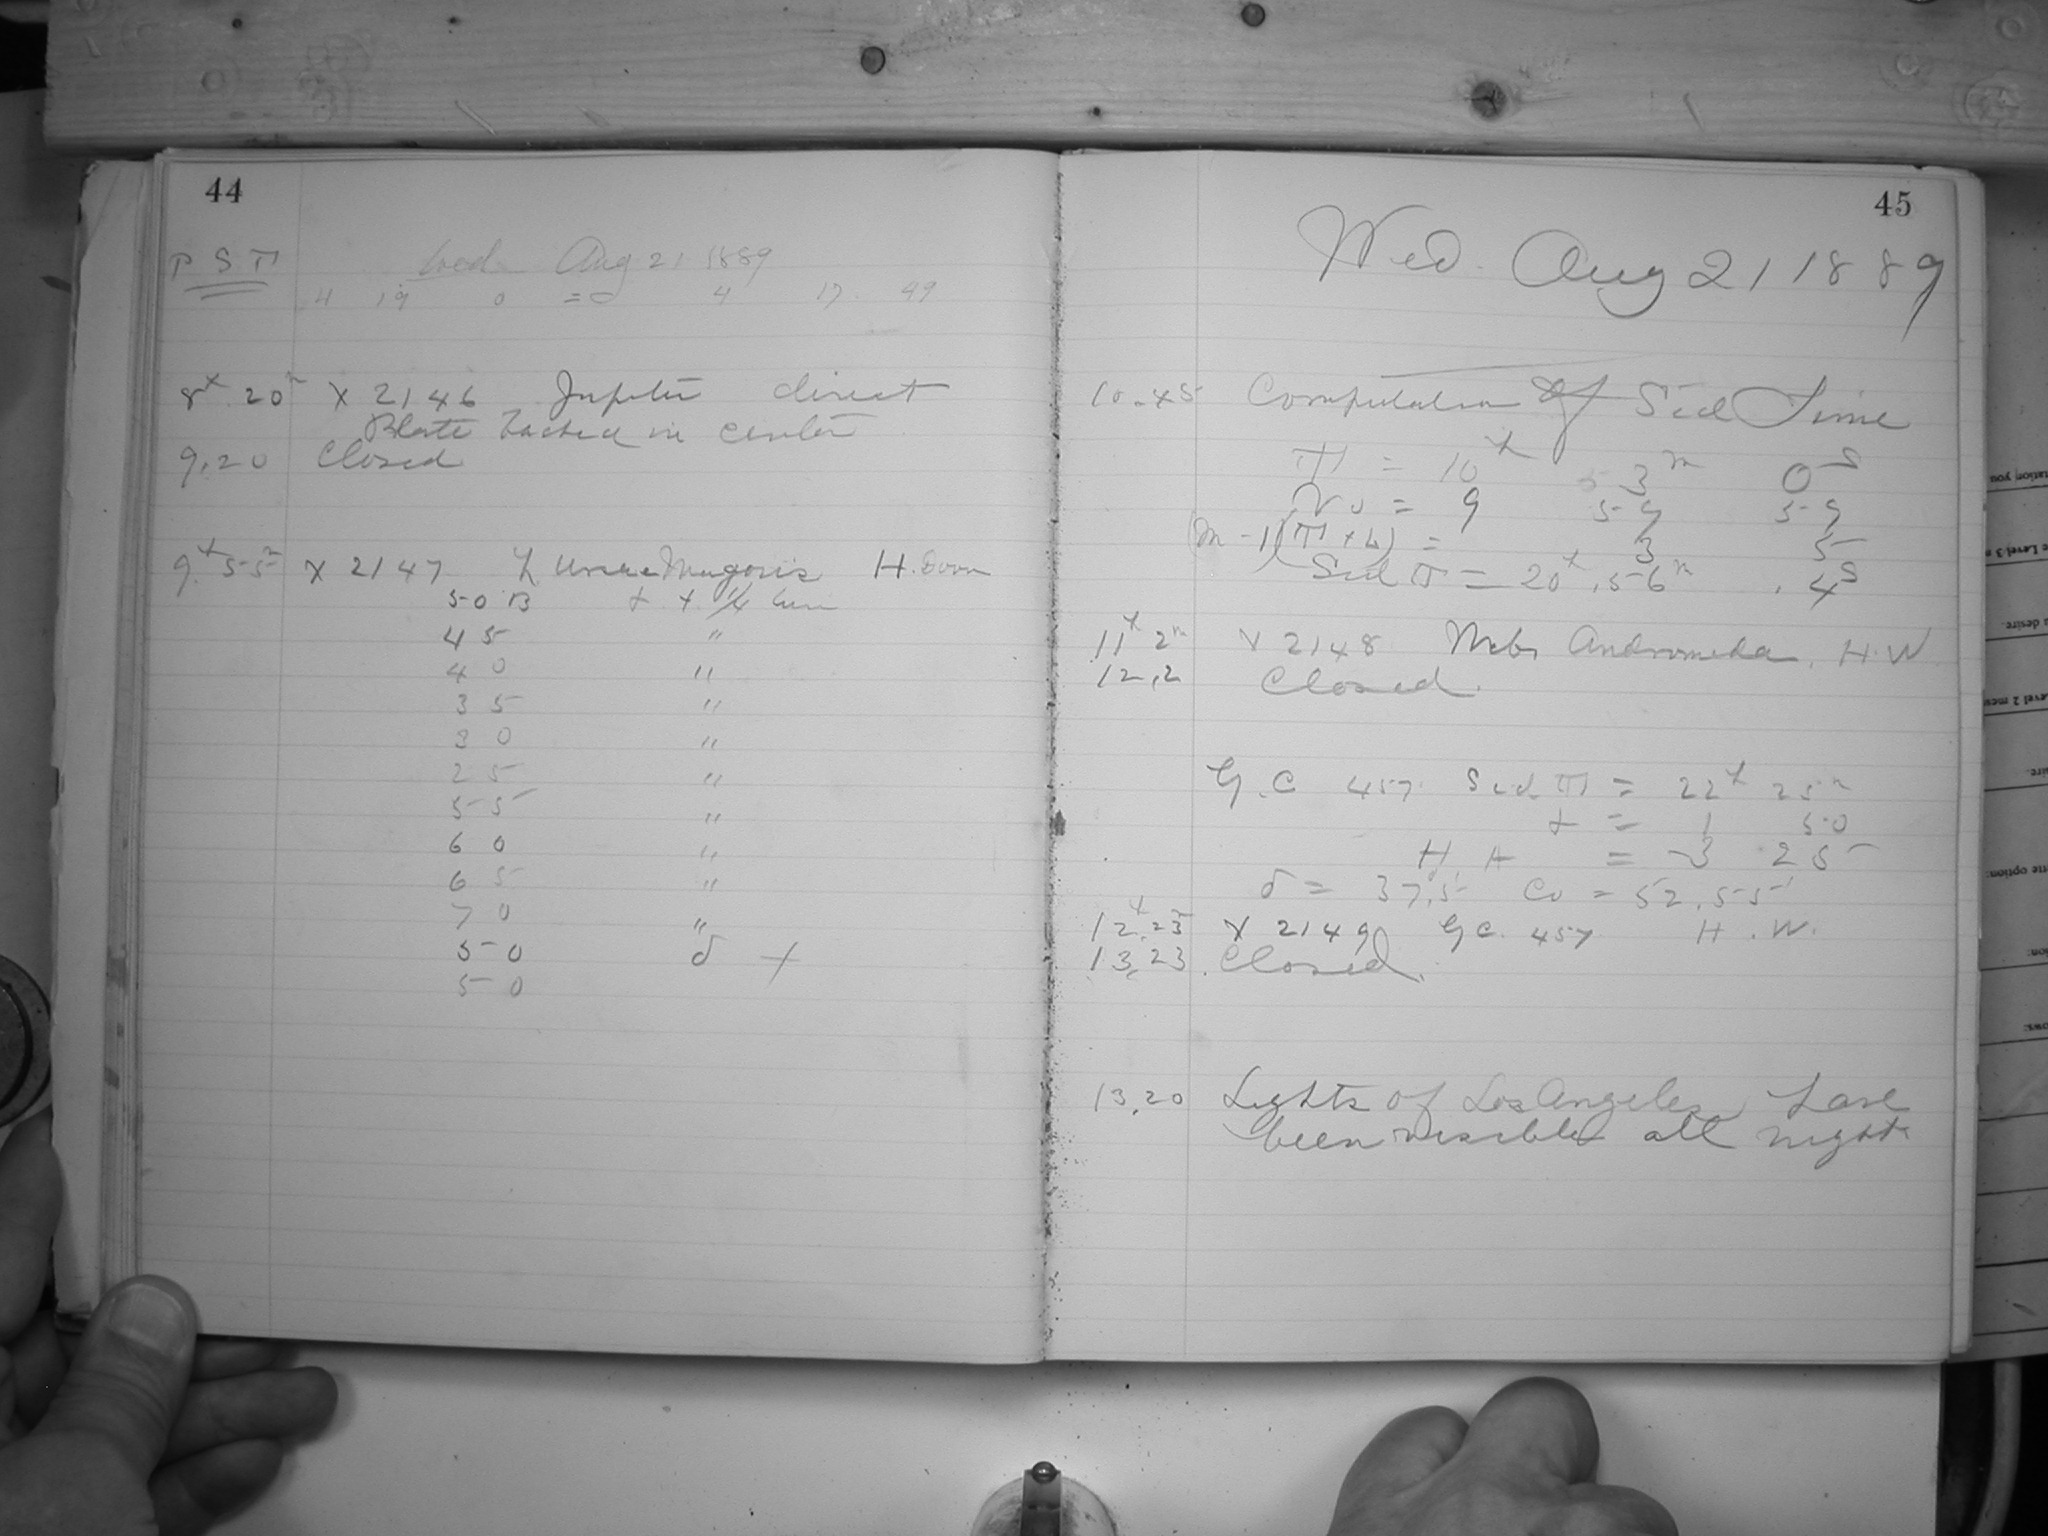 44
P S T
Wed Aug 21 1889
4 19 0 = 4 17 49
8h 20m X 2146 Jupiter direct
Plate backed in center
9.20 Closed
9h 55m X 2147 ζ Ursae Majoris H.
50 B α + 1/4
45 "
40 "
35 "
30 "
25 "
55 "
60 "
65 "
70 "
50 δ +
50
45
Wed. Aug 21 1889
10.45 Computation of Sid Time
T = 10h 53m 0s
= 9 59 59
= 3 5
Sid T = 20h .56m .4s
11h 2m X 2148 Neb. Andromeda. H.W
12.2 Closed.
G.C 457. Sid T = 22h 25m
α = 1 50
H A = -3 25
δ = 37.5 Co = 52.55
12h.23m X 2149 G C. 457 H.W.
13.23 Closed.
13.20 Lights of Los Angeles have
been visible all night